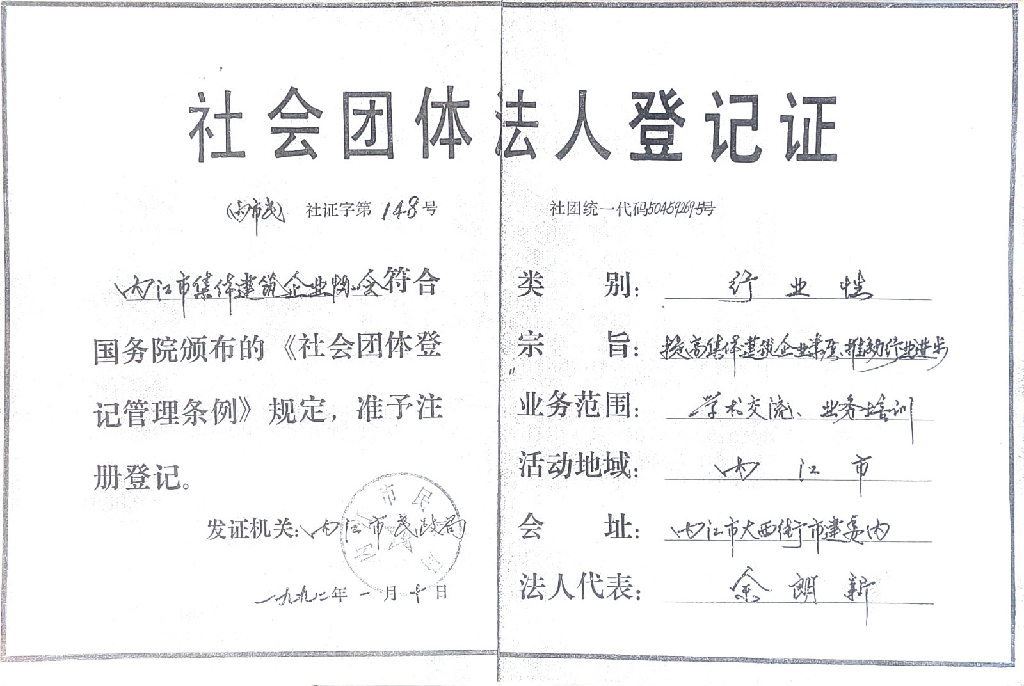 社会团体法人登记证
内市民 社证字第148号
内江市集体建筑企业协会符合
国务院颁布的《社会团体登
记管理条例》规定，准予注
册登记。
发证机关：内江市民政局
一九九二年一月十日
社团统一代码50459269-5号
类 别：行业性
宗 旨：提高集体建筑企业素质、推动行业进步
业务范围：学术交流、业务培训
活动地域：内江市
会 址：内江市大西街市建委内
法人代表：余朗新